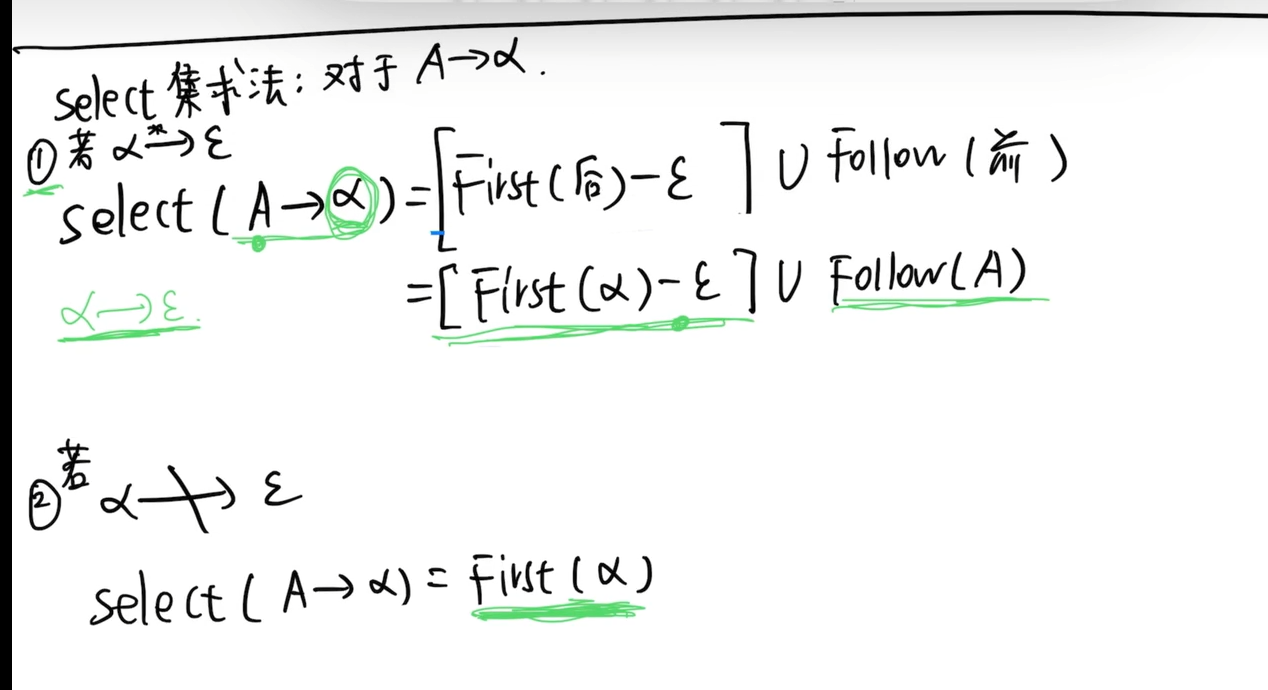 select 集求法：对于 A→α.
①若 α*→ε
select ( A→α ) = [ First(后)-ε ] ∪ Follow (前)
= [ First (α)-ε ] ∪ Follow(A)
α→ε.
②若 α↛ε
select ( A→α) = First (α)